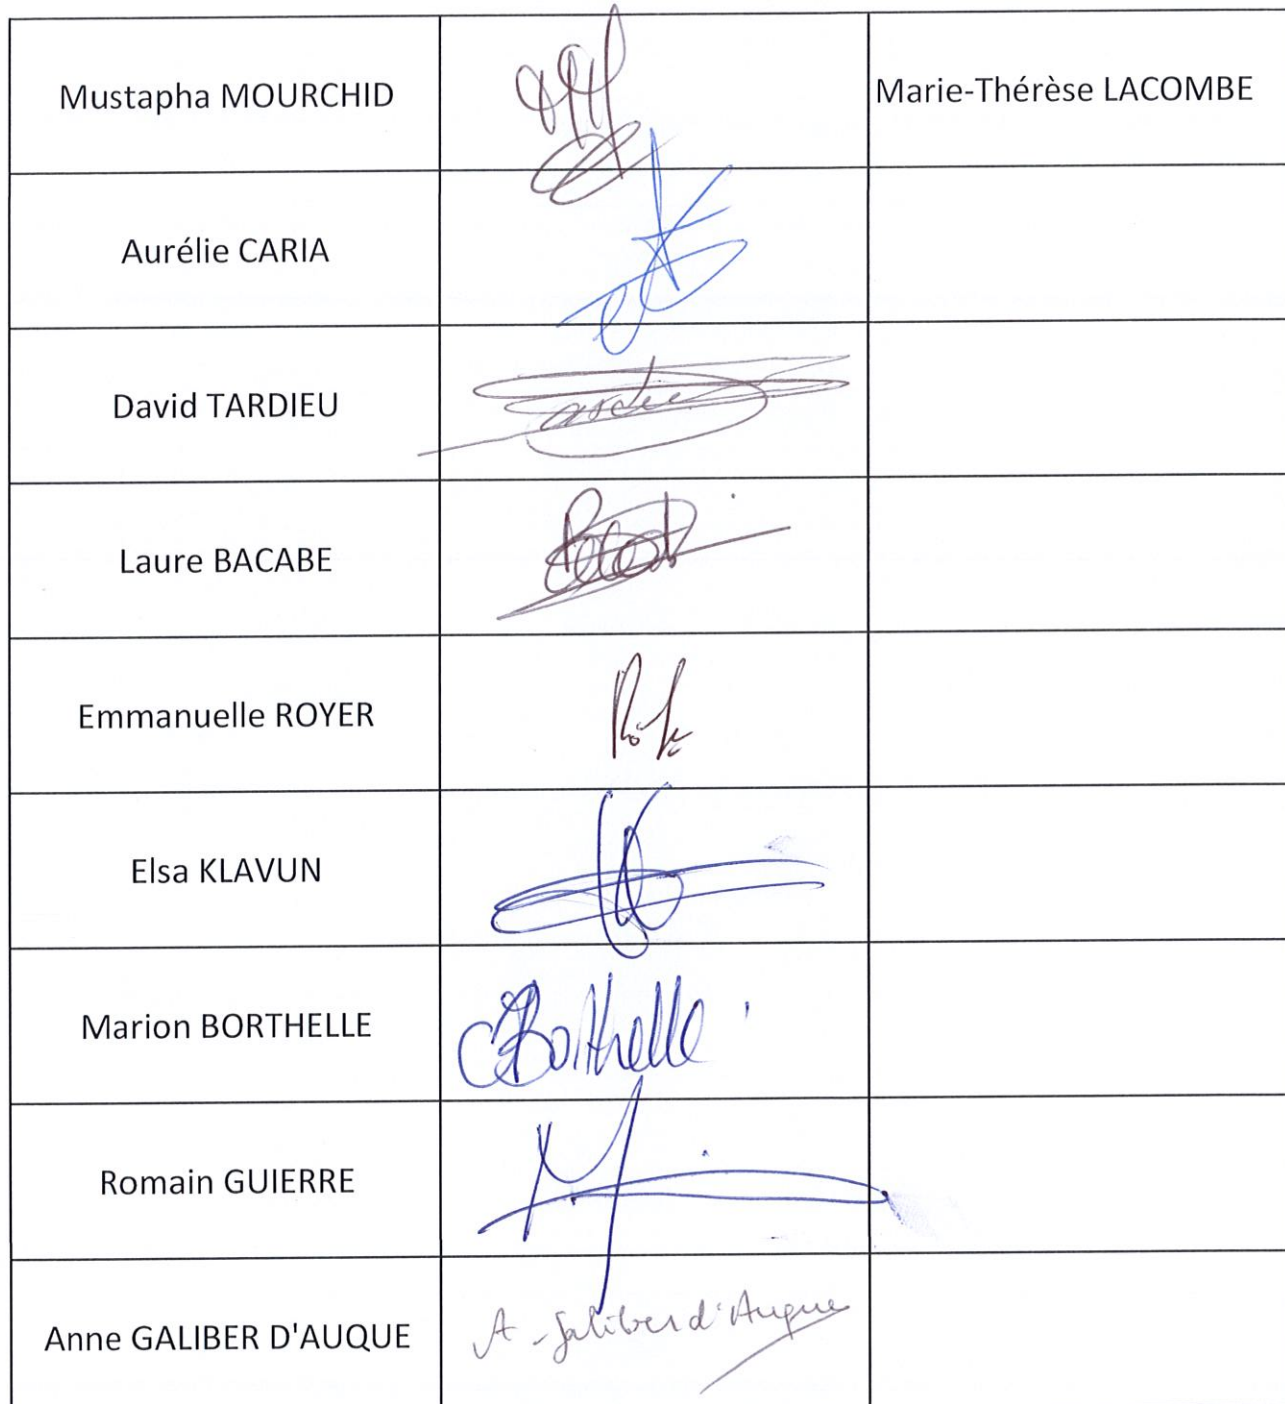 Mustapha MOURCHID
Marie-Thérèse LACOMBE
Aurélie CARIA
David TARDIEU
Laure BACABE
Emmanuelle ROYER
Elsa KLAVUN
Marion BORTHELLE
Borthelle
Romain GUIERRE
Anne GALIBER D'AUQUE
A - Galiber d'Auque